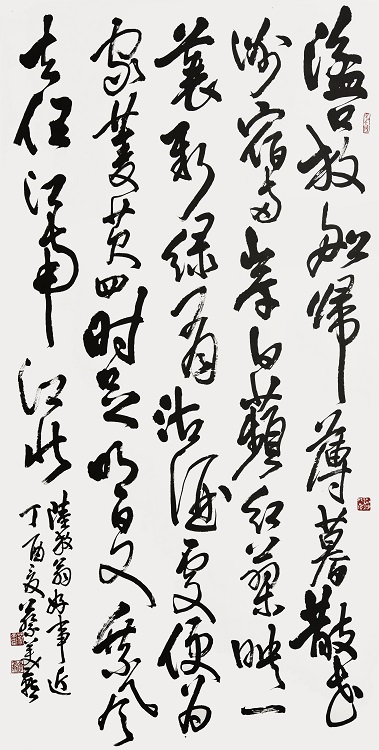 溢口放船歸薄暮散花
洲宿兩岸白蘋紅蓼映一
蓑新綠有沽酒處便为
家菱芡四时足明日又乘风
去任江南江北
陸放翁好事近
丁酉夏